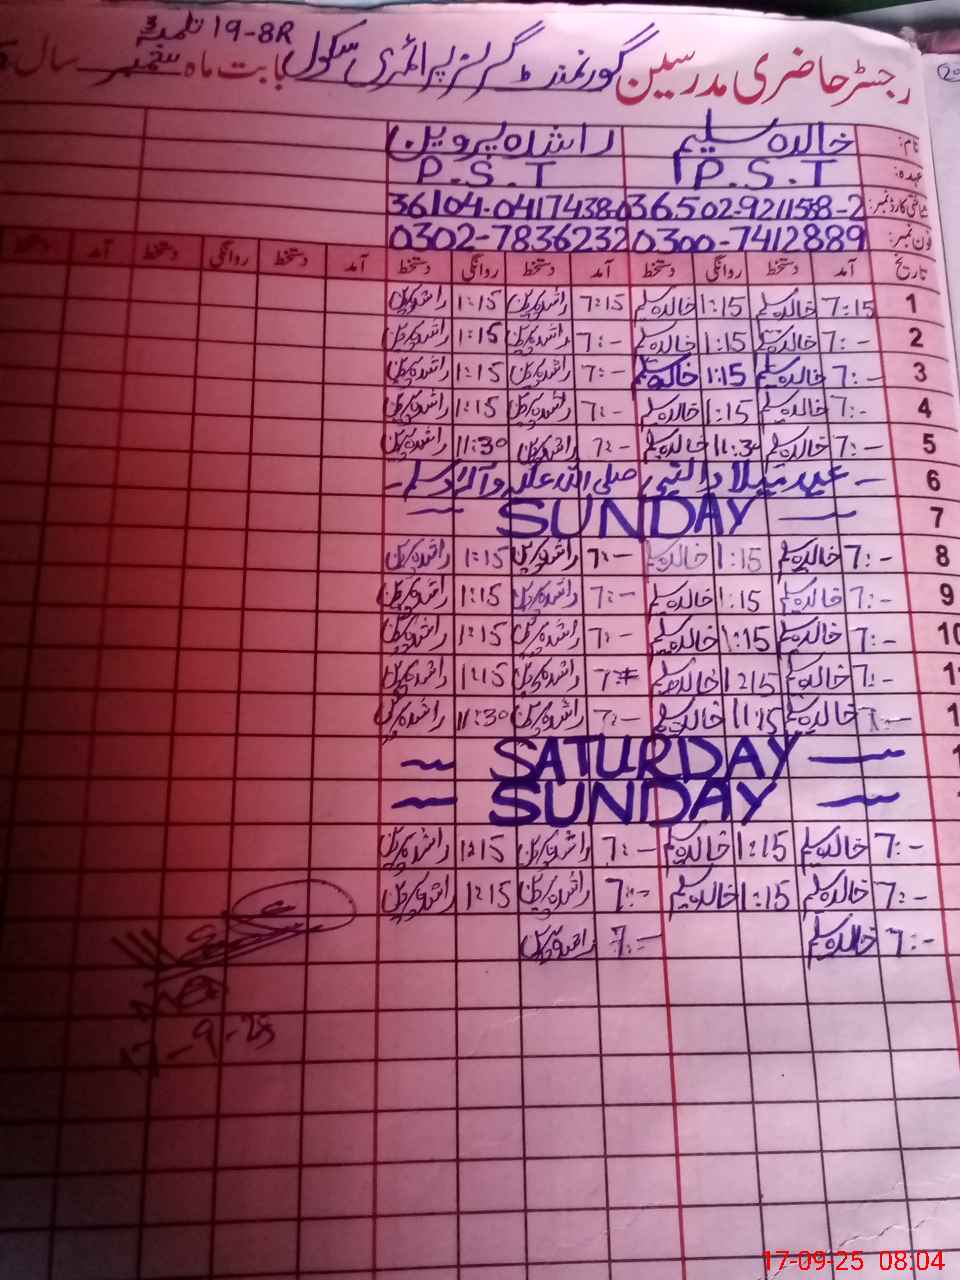 19-8R تلمبہ
رجسٹر حاضری مدرسین گورنمنٹ گرلز پرائمری سکول بابت ماہ ستمبر سال
نام: خالدہ سلیم راشدہ پروین
عہدہ: P.S.T P.S.T
شناختی کارڈ نمبر: 36502-9211588-2 36104-0417438-0
فون نمبر: 0300-7412889 0302-7836232
تاریخ آمد دستخط روانگی دستخط آمد دستخط روانگی دستخط آمد دستخط روانگی دستخط آمد دستخط
1 7:15 خالدہ سلیم 1:15 خالدہ سلیم 7:15 راشدہ پروین 1:15 راشدہ پروین
2 7:- خالدہ سلیم 1:15 خالدہ سلیم 7:- راشدہ پروین 1:15 راشدہ پروین
3 7:- خالدہ سلیم 1:15 خالدہ سلیم 7:- راشدہ پروین 1:15 راشدہ پروین
4 7:- خالدہ سلیم 1:15 خالدہ سلیم 7:- راشدہ پروین 1:15 راشدہ پروین
5 7:- خالدہ سلیم 11:30 خالدہ سلیم 7:- راشدہ پروین 11:30 راشدہ پروین
6 - عید میلاد النبی صلی اللہ علیہ وآلہ وسلم -
7 SUNDAY
8 7:- خالدہ سلیم 1:15 خالدہ سلیم 7:- راشدہ پروین 1:15 راشدہ پروین
9 7:- خالدہ سلیم 1:15 خالدہ سلیم 7:- راشدہ پروین 1:15 راشدہ پروین
10 7:- خالدہ سلیم 1:15 خالدہ سلیم 7:- راشدہ پروین 1:15 راشدہ پروین
1 7:- خالدہ سلیم 1:15 خالدہ سلیم 7: راشدہ پروین 1:15 راشدہ پروین
1 7:- خالدہ سلیم 11:15 خالدہ سلیم 7:- راشدہ پروین 11:30 راشدہ پروین
SATURDAY
SUNDAY
7:- خالدہ سلیم 1:15 خالدہ سلیم 7:- راشدہ پروین 1:15 راشدہ پروین
7:- خالدہ سلیم 1:15 خالدہ سلیم 7:- راشدہ پروین 1:15 راشدہ پروین
7:- خالدہ سلیم 7:- راشدہ پروین
17-9-25
17-09-25 08:04